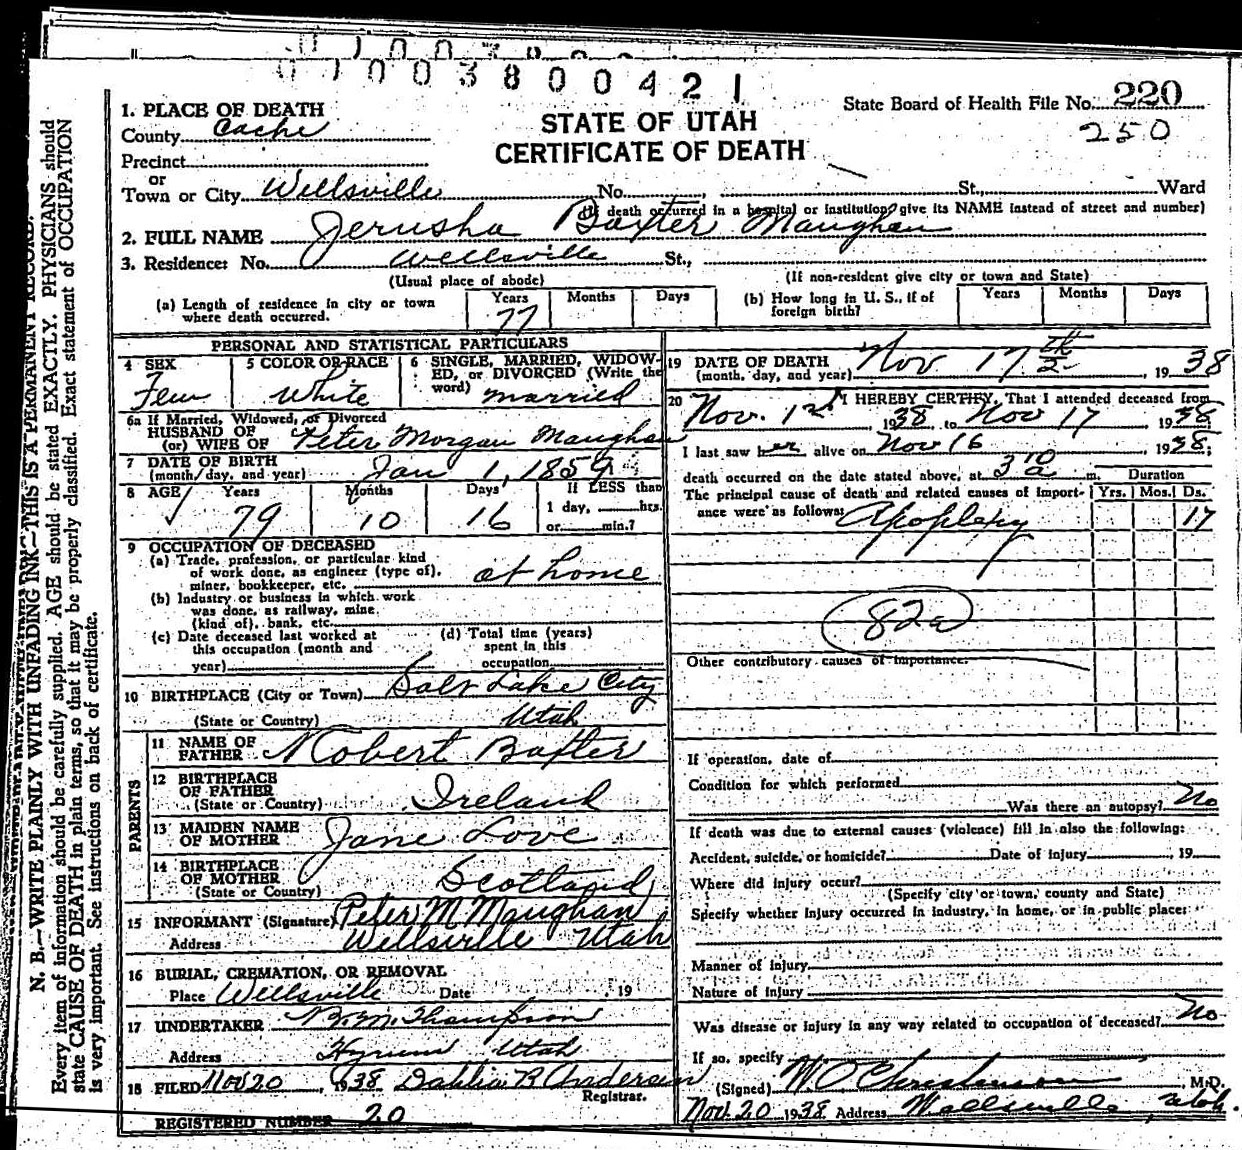 0 1 0 0 3 8 0 0 4 2 1
1. PLACE OF DEATH
County Cache
Precinct
or
Town or City Wellsville No. , St., Ward
(If death occurred in a hospital or institution, give its NAME instead of street and number)
STATE OF UTAH
CERTIFICATE OF DEATH
State Board of Health File No. 220
250
2. FULL NAME Jerusha Baxter Maughan
3. Residence: No. Wellsville St.,
(Usual place of abode) (If non-resident give city or town and State)
(a) Length of residence in city or town where death occurred. Years 77 Months Days
(b) How long in U. S., if of foreign birth? Years Months Days
PERSONAL AND STATISTICAL PARTICULARS
4 SEX Fem
5 COLOR OR RACE White
6 SINGLE, MARRIED, WIDOWED, or DIVORCED (Write the word) married
6a If Married, Widowed, or Divorced
HUSBAND OF
(or) WIFE OF Peter Morgan Maughan
7 DATE OF BIRTH
(month, day, and year) Jan 1, 1859
8 AGE Years 79 Months 10 Days 16 If LESS than 1 day, hrs. or min.?
9 OCCUPATION OF DECEASED
(a) Trade, profession, or particular kind
of work done, as engineer (type of),
miner, bookkeeper, etc. at home
(b) Industry or business in which work
was done, as railway, mine,
(kind of), bank, etc.
(c) Date deceased last worked at
this occupation (month and
year)
(d) Total time (years)
spent in this
occupation
10 BIRTHPLACE (City or Town) Salt Lake City
(State or Country) Utah
PARENTS
11 NAME OF
FATHER Robert Baxter
12 BIRTHPLACE
OF FATHER
(State or Country) Ireland
13 MAIDEN NAME
OF MOTHER Jane Love
14 BIRTHPLACE
OF MOTHER
(State or Country) Scotland
15 INFORMANT (Signature) Peter M Maughan
Address Wellsville Utah
16 BURIAL, CREMATION, OR REMOVAL
Place Wellsville Date , 19
17 UNDERTAKER M. Thompson
Address Hyrum Utah
18 FILED Nov 20, 1938 Dahlia R Anderson
Registrar.
REGISTERED NUMBER 20
19 DATE OF DEATH
(month, day, and year) Nov 17th, 1938
20 I HEREBY CERTIFY, That I attended deceased from
Nov. 1st, 1938 to Nov 17 1938
I last saw her alive on Nov 16, 1938;
death occurred on the date stated above, at 3 10 a m. Duration
The principal cause of death and related causes of importance were as follows: Yrs. Mos. Ds.
Apoplexy 17
82a
Other contributory causes of importance:
If operation, date of
Condition for which performed
Was there an autopsy? No
If death was due to external causes (violence) fill in also the following:
Accident, suicide, or homicide? Date of injury , 19
Where did injury occur?
(Specify city or town, county and State)
Specify whether injury occurred in industry, in home, or in public place:
Manner of injury
Nature of injury
Was disease or injury in any way related to occupation of deceased? No
If so, specify
(Signed) W. O. Christenson, M.D.
Nov. 20 1938 Address Wellsville, Utah.
N. B.—WRITE PLAINLY WITH UNFADING INK—THIS IS A PERMANENT RECORD.
Every item of information should be carefully supplied. AGE should be stated EXACTLY. PHYSICIANS should
state CAUSE OF DEATH in plain terms, so that it may be properly classified. Exact statement of OCCUPATION
is very important. See instructions on back of certificate.